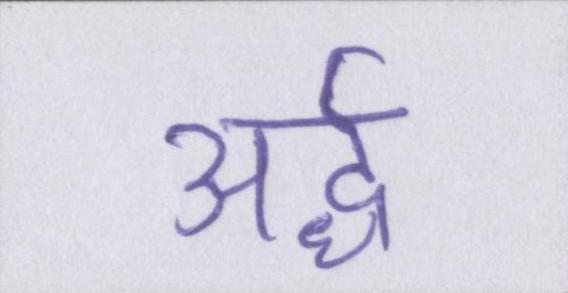 अर्द्ध